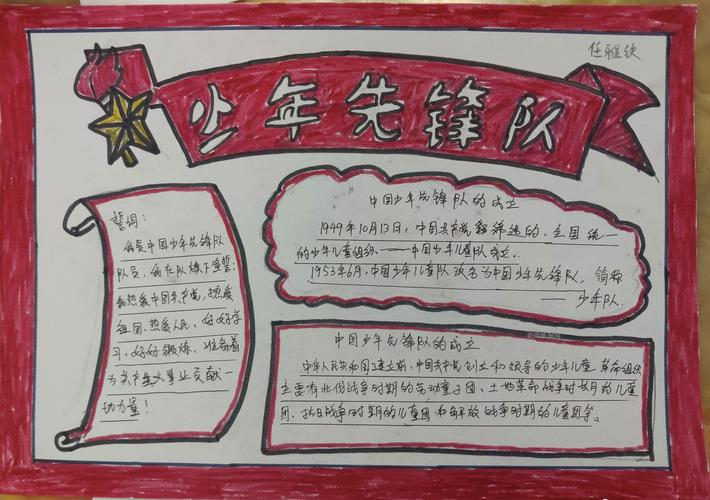 任雅欣
少年先锋队
誓词:
我是中国少年先锋队
队员,我在队旗下宣誓:
我热爱中国共产党,热爱
祖国,热爱人民,好好学
习,好好锻炼,准备着
为共产主义事业贡献一
切力量!
中国少年先锋队的成立
1949年10月13日,中国共产党 的、全国统一
的少年儿童组织——中国少年儿童队成立。
1953年6月,中国少年儿童队改名为中国少年先锋队,简称
——少年队
中国少年先锋队的成立
中华人民共和国建立前,中国共产党创立和领导的少年儿童革命组织
主要有北伐战争时期的劳动童子团、土地革命战争时期的儿童
团、抗日战争时期的儿童团和解放战争时期的儿童团等。